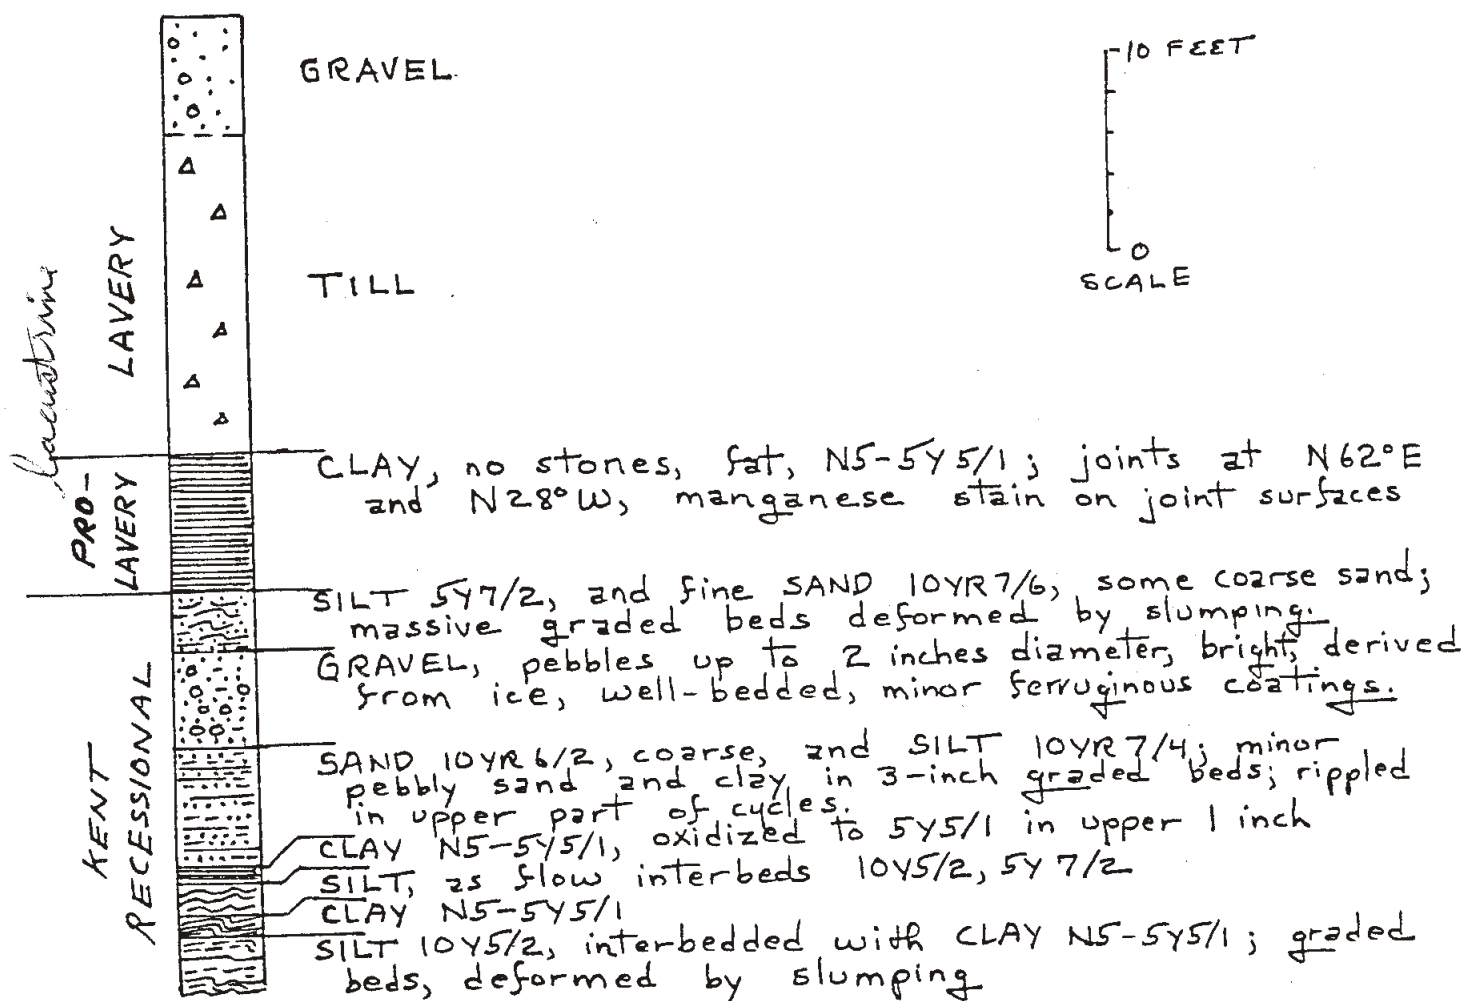 GRAVEL
10 FEET
0
SCALE
TILL
lacustrine
LAVERY
PRO-
LAVERY
KENT
RECESSIONAL
CLAY, no stones, fat, N5-5Y5/1; joints at N62°E
and N28°W, manganese stain on joint surfaces
SILT 5Y7/2, and fine SAND 10YR7/6, some coarse sand;
massive graded beds deformed by slumping.
GRAVEL, pebbles up to 2 inches diameter, bright, derived
from ice, well-bedded, minor ferruginous coatings.
SAND 10YR6/2, coarse, and SILT 10YR7/4; minor
pebbly sand and clay, in 3-inch graded beds; rippled
in upper part of cycles.
CLAY N5-5Y5/1, oxidized to 5Y5/1 in upper 1 inch
SILT, as flow interbeds 10Y5/2, 5Y7/2
CLAY N5-5Y5/1
SILT 10Y5/2, interbedded with CLAY N5-5Y5/1; graded
beds, deformed by slumping